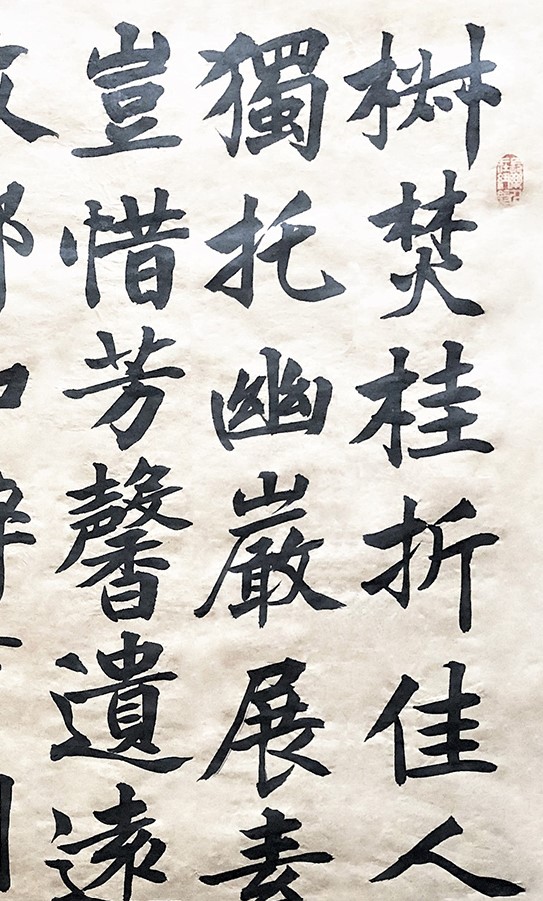 椒焚桂折佳人
獨托幽巖展素
豈惜芳馨遺遠